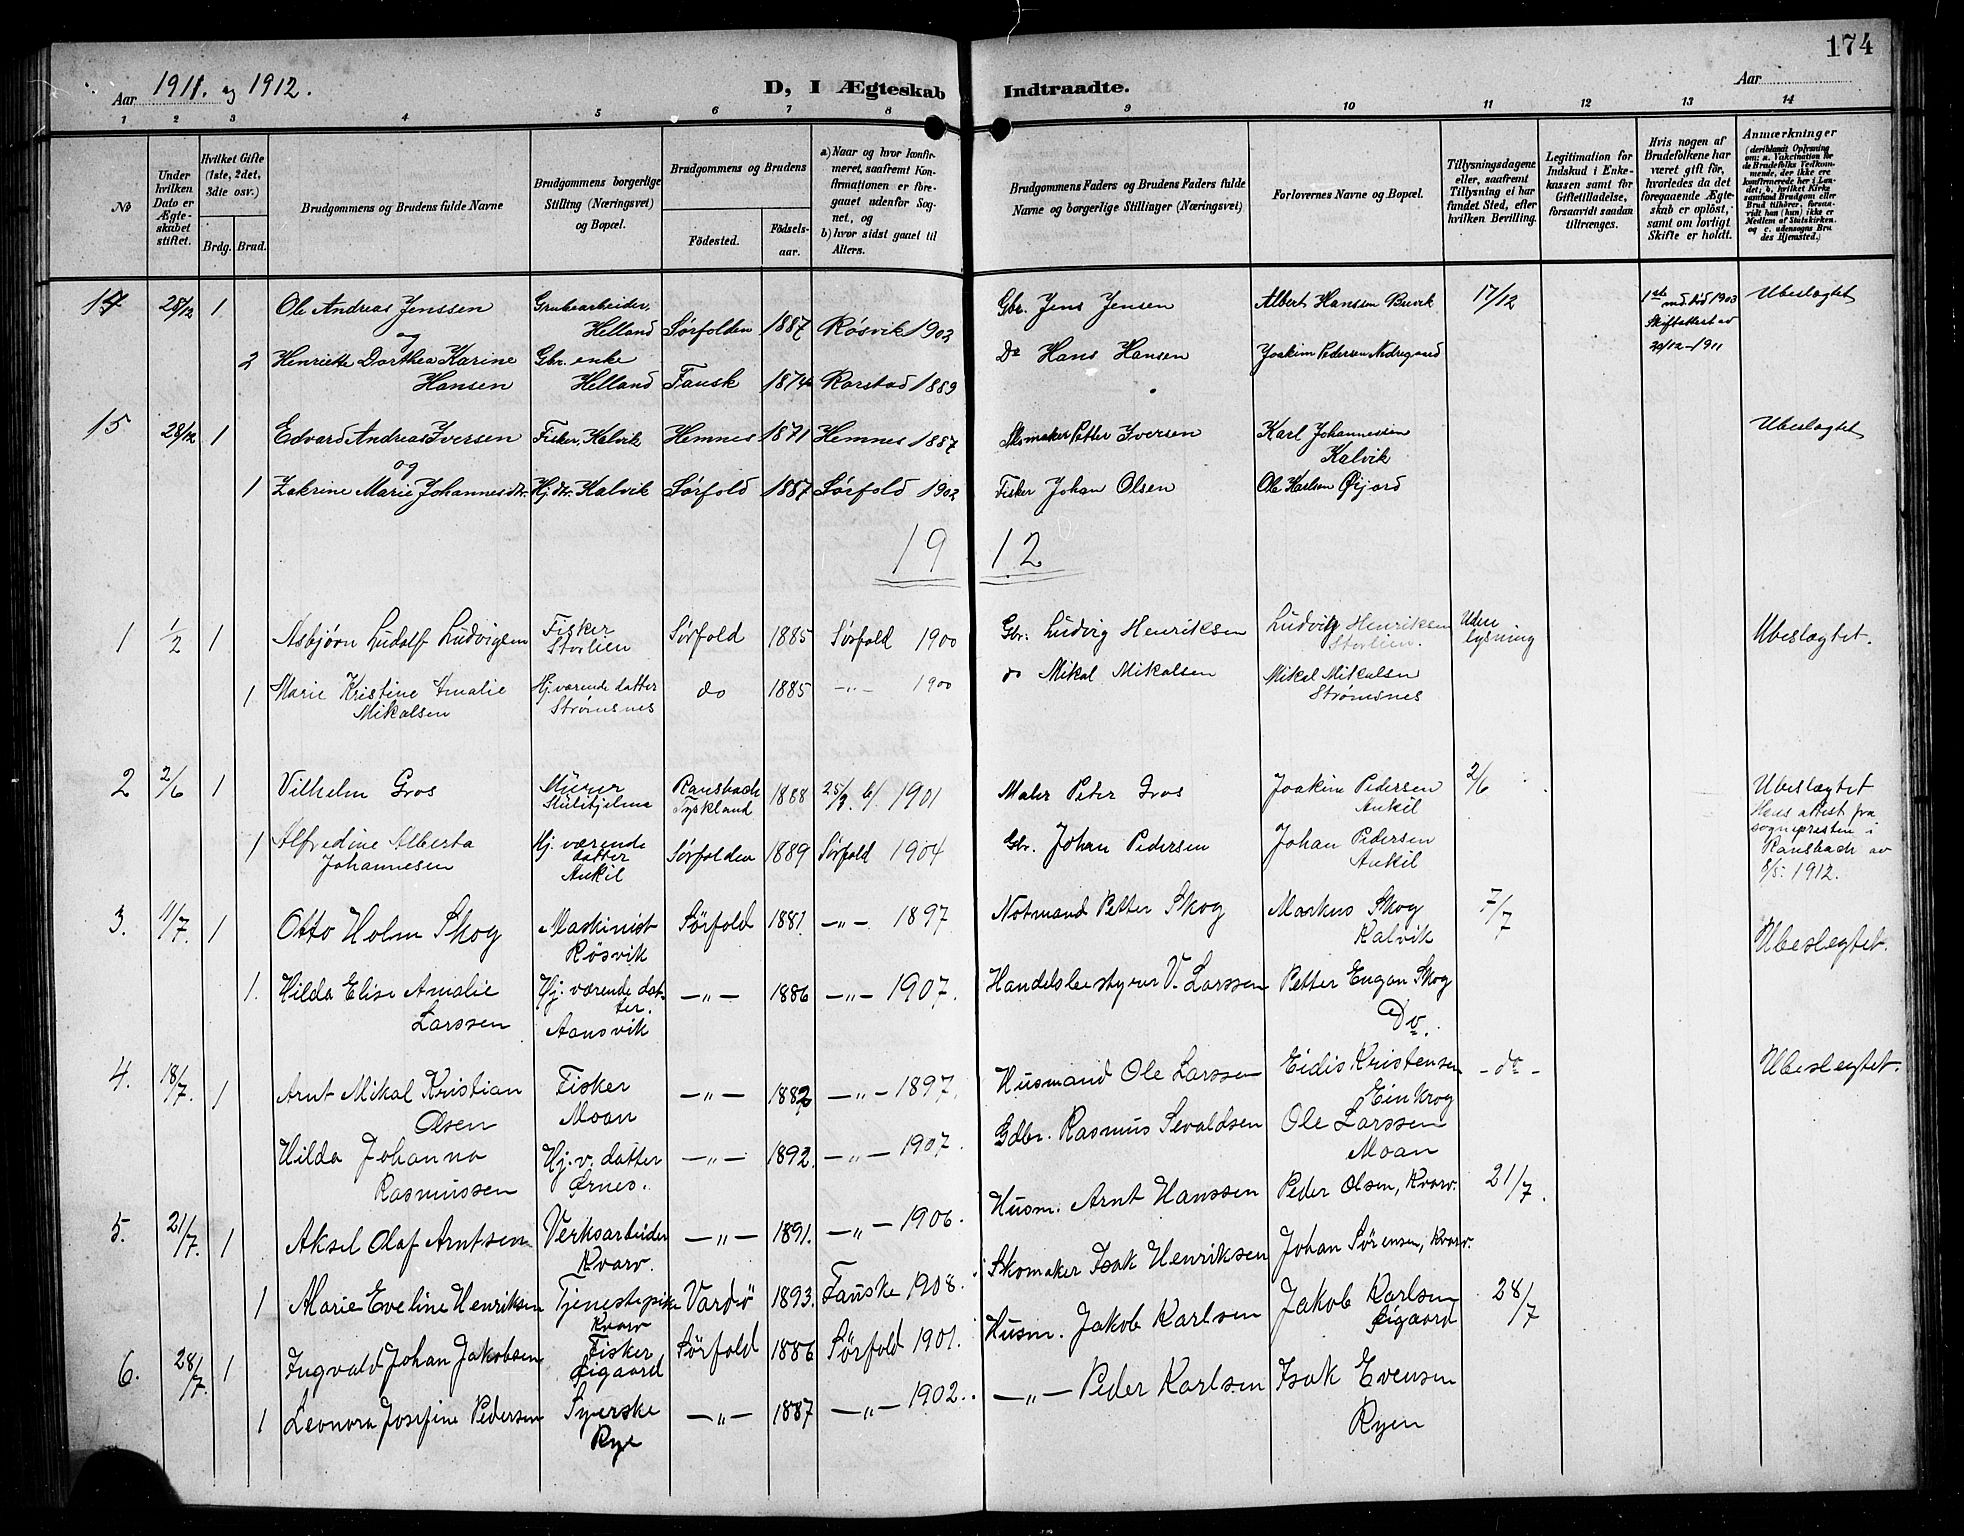 174
Aar 1911. og 1912.
D, I Ægteskab Indtraadte.
Aar
1 2 3 4 5 6 7 8 9 10 11 12 13 14
No
Under hvilken Dato er Ægteskabet stiftet.
Hvilket Gifte (1ste, 2det, 3die osv.)
Brdg. Brud.
Brudgommens og Brudens fulde Navne
Brudgommens borgerlige Stilling (Næringsvei) og Bopæl.
Brudgommens og Brudens
Fødested. Fødselsaar.
a) Naar og hvor konfirmeret, saafremt Konfirmationen er foregaaet udenfor Sognet, og
b) hvor sidst gaaet til Alters.
Brudgommens Faders og Brudens Faders fulde Navne og borgerlige Stillinger (Næringsvei)
Forlovernes Navne og Bopæl.
Tillysningsdagene eller, saafremt Tillysning ei har fundet Sted, efter hvilken Bevilling.
Legitimation for Indskud i Enkekassen samt for Giftetilladelse, forsaavidt saadan tiltrænges.
Hvis nogen af Brudefolkene har været gift før, hvorledes da det foregaaende Ægteskab er opløst, samt om lovligt Skifte er holdt.
Anmærkninger (deriblandt Oplysning om: a. Vaccination for de Brudefolks Vedkommende, der ikke ere konfirmerede her i Landet; b. hvilket Kirkesamfund Brudgom eller Brud tilhører, forsaavidt han (hun) ikke er Medlem af Statskirken, og c. udensogns Brudes Hjemsted.)
14 28/12 1 Ole Andreas Jenssen Grubearbeider, Helland Sørfolden 1887 Røsvik 1902 Gbr. Jens Jensen Albert Hanssen Buvik 17/12 1ste md. død 1903 Skifteattest av 20/12-1911 Ubeslægtet
og
2 Henriette Dorthea Karine Hansen Gbr. enke Helland Fausk 1874 Rørstad 1889 Do Hans Hansen Joakim Pedersen Nedregaard
15 28/12 1 Edvard Andreas Iversen Fisker, Kalvik Hemnes 1871 Hemnes 1887 Skomaker Petter Iversen Karl Johannessen Kalvik Ubeslægtet
og
1 Zakrine Marie Johannesdtr. Hj. dtr. Kalvik Sørfold 1887 Sørfold 1902 Fisker Johan Olsen Ole Karlsen Øijord
19 12
1 1/2 1 Asbjørn Ludolf Ludvigsen Fisker Storlien Sørfold 1885 Sørfold 1900 Gbr: Ludvig Henriksen Ludvig Henriksen Storlien. Uden lysning Ubeslægtet.
1 Marie Kristine Amalie Mikalsen Hj. værende datter Strømsnes do 1885 -"- 1900 do Mikal Mikalsen Mikal Mikalsen Strømsnes
2 2/6 1 Vilhelm Gros Murer Sulitjelma Ransbach Tyskland 1888 1901 Maler Peter Gros Joakim Pedersen Ankil 2/6 Ubeslægtet
Hans attest fra sognepresten i Ransbach av 8/5. 1912.
1 Alfredine Alberta Johannesen Hj. værende datter Ankil Sørfolden 1889 Sørfold 1904 Gbr. Johan Pedersen Johan Pedersen Ankil
3. 11/7. 1 Otto Holm Skog Maskinist Røsvik Sørfold 1881. -"- 1897 Notmand Petter Skog Markus Skog Kalvik 7/7 Ubeslegtet.
1. Hilda Elise Amalie Larssen Hj. værende datter. Aansvik -"- 1886 -"- 1907. Handelsbestyrer V. Larssen Petter Engan Skog Do.
4. 18/7. 1 Arnt Mikal Kristian Olsen Fisker Moan -"- 1882 -"- 1897. Husmand Ole Larssen Eidis Kristensen Einkrog -do- Ubeslegtet.
Hilda Johanna Rasmussen Hj. v. datter Ørnes. -"- 1892. -"- 1907. Gdbr. Rasmus Sevaldsen Ole Larssen Moan
5. 21/7. 1 Aksel Olaf Arntsen Verksarbeider Kvarv. -"- 1891. -"- 1906. Husm. Arnt Hanssen Peder Olsen, Kvarv. 21/7.
1 Marie Eveline Henriksen Tjenestepike Kvarv Vardø 1893. Fauske 1908. Skomaker Isak Henriksen Johan Sørensen, Kvarv.
6. 28/7. 1 Ingvald Johan Jakobsen Fisker Øigaard Sørfold 1886 Sørfold 1901. Husm. Jakob Karlsen Jakob Karlsen Øigaard 28/7
1 Leonora Josefine Pedersen Syerske Rye -"- 1887 -"- 1902. -"- Peder Karlsen Isak Evensen Ryen